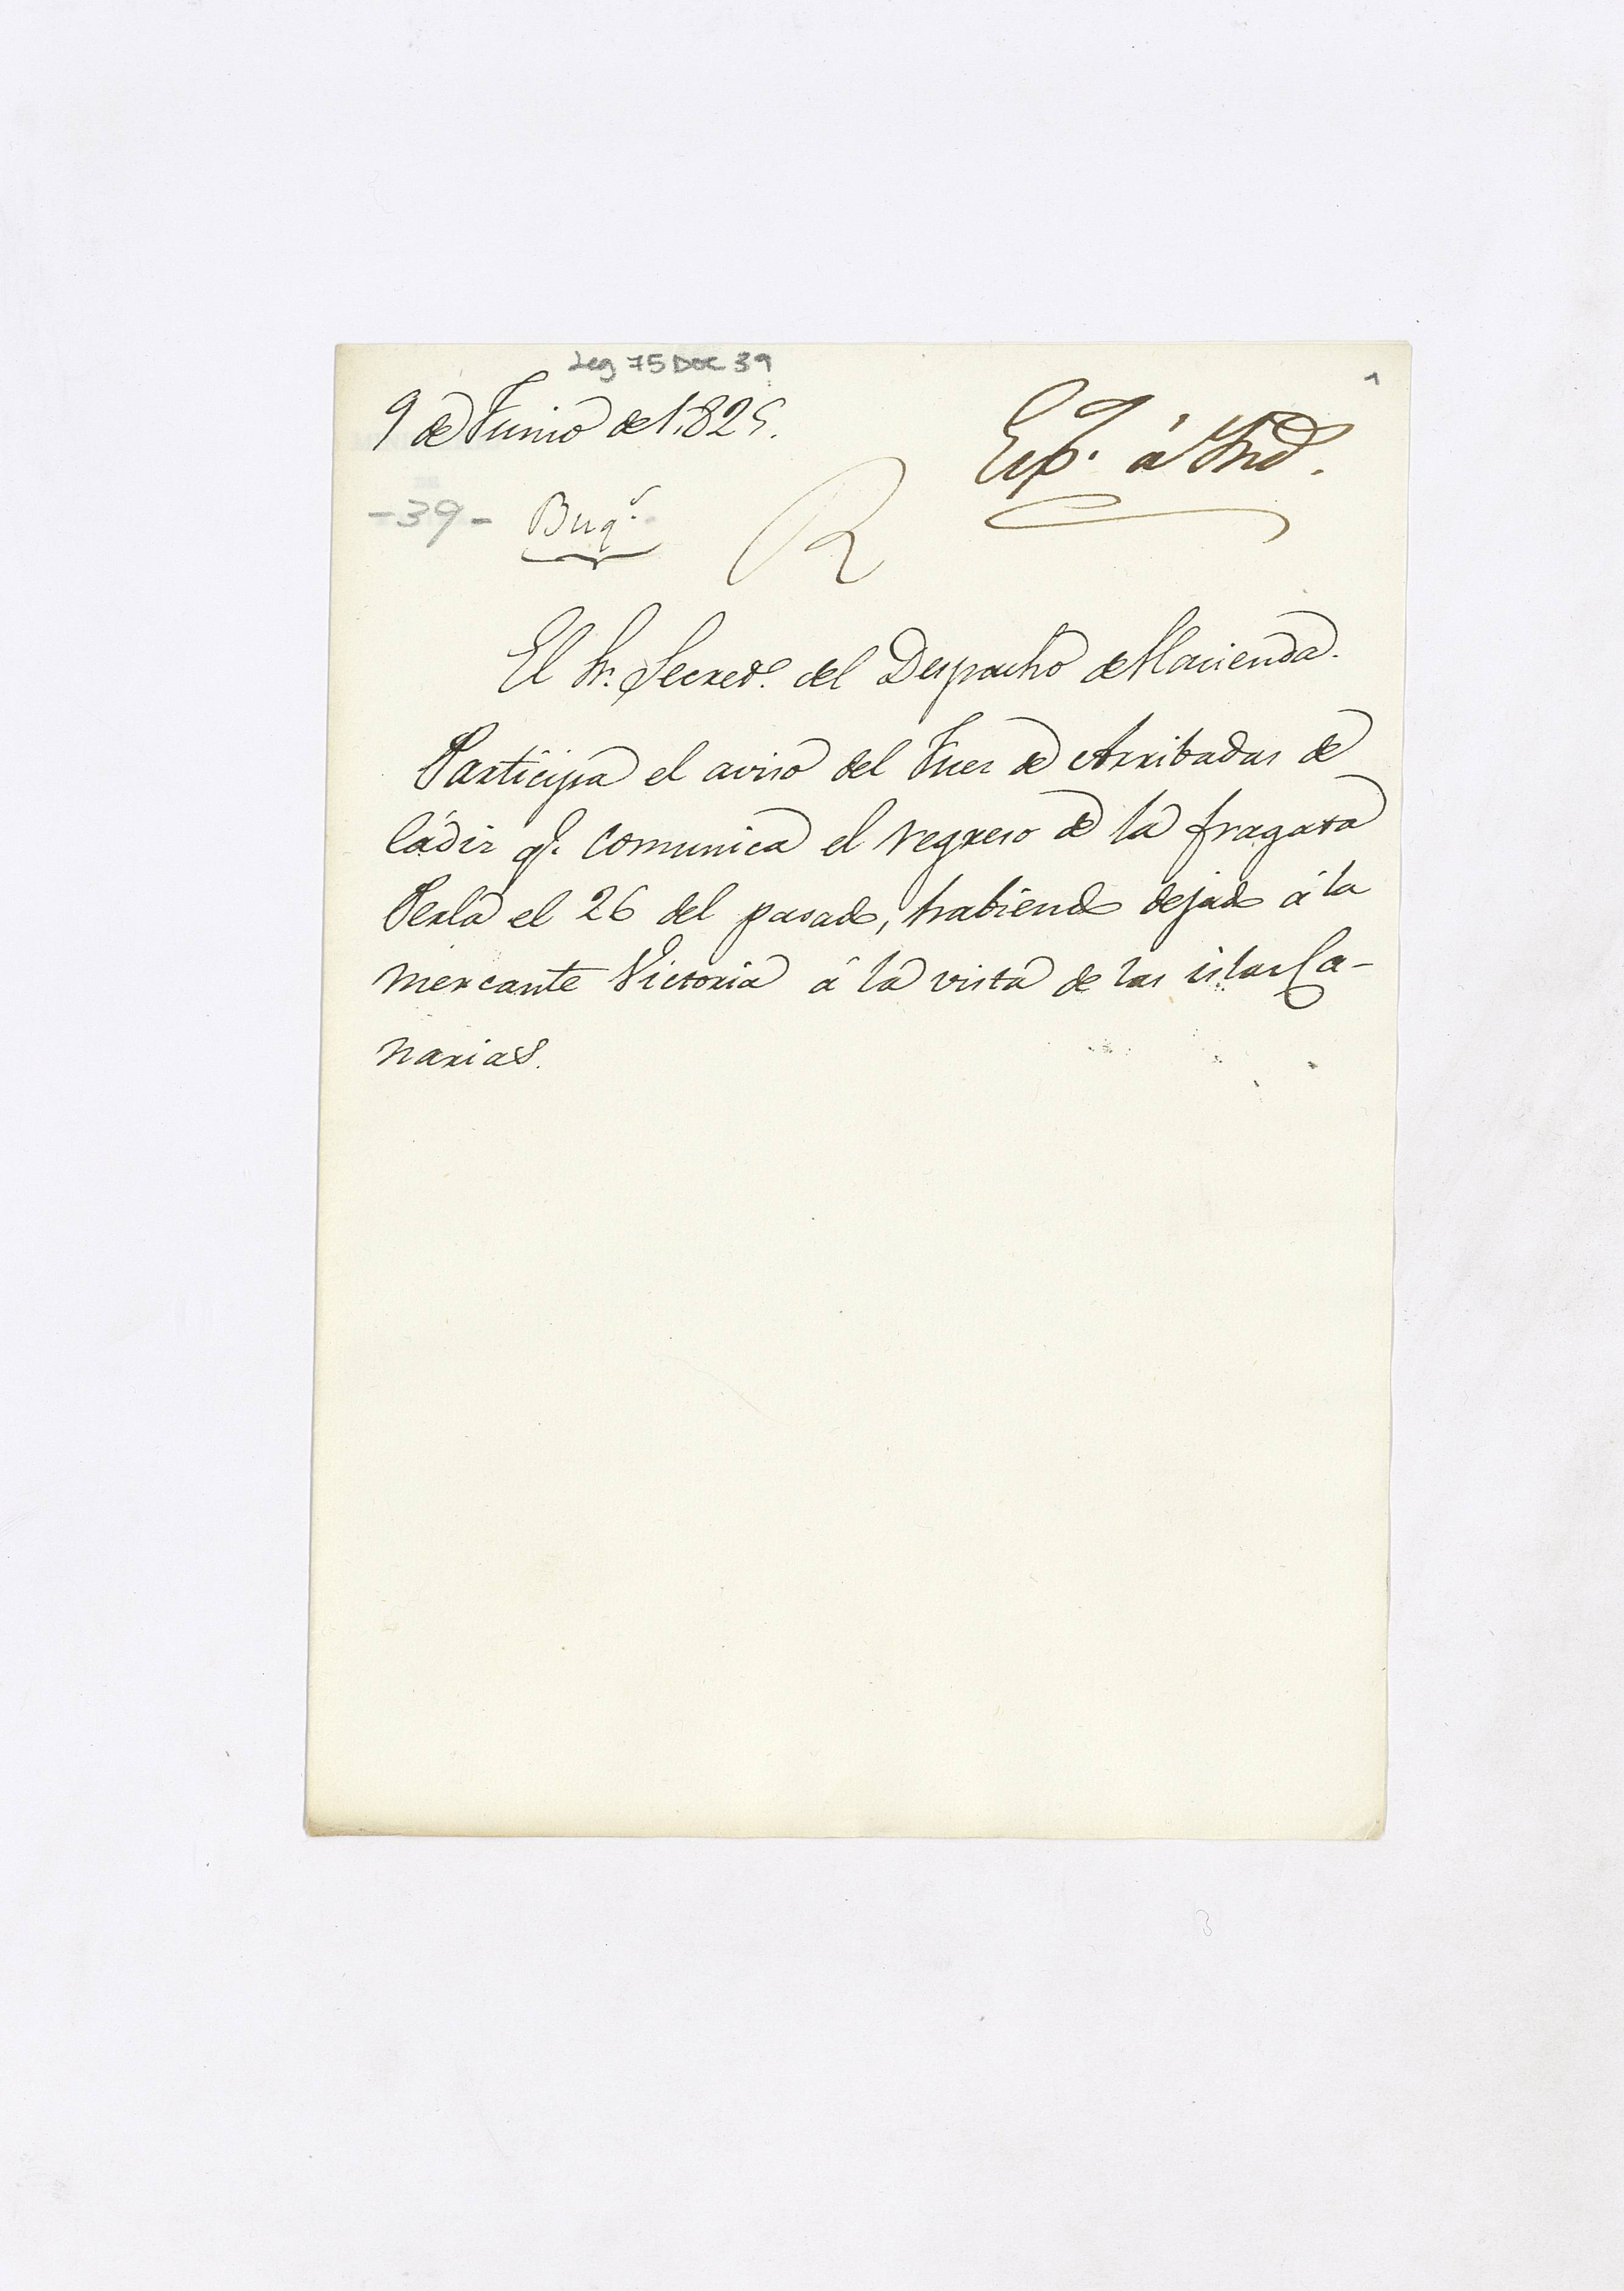 Leg 75 Doc 39
1
9 de Junio de 1.825.
Exp.n á Ind.
-39-
Buq.s
R
El Sr. Secret.o del Despacho de Hacienda.
Participa el aviso del Juez de Arribadas de
Cádiz q.e comunica el regreso de la fragata
Perla el 26 del pasado, habiendo dejado á la
mercante Victoria á la vista de las islas Ca-
narias.